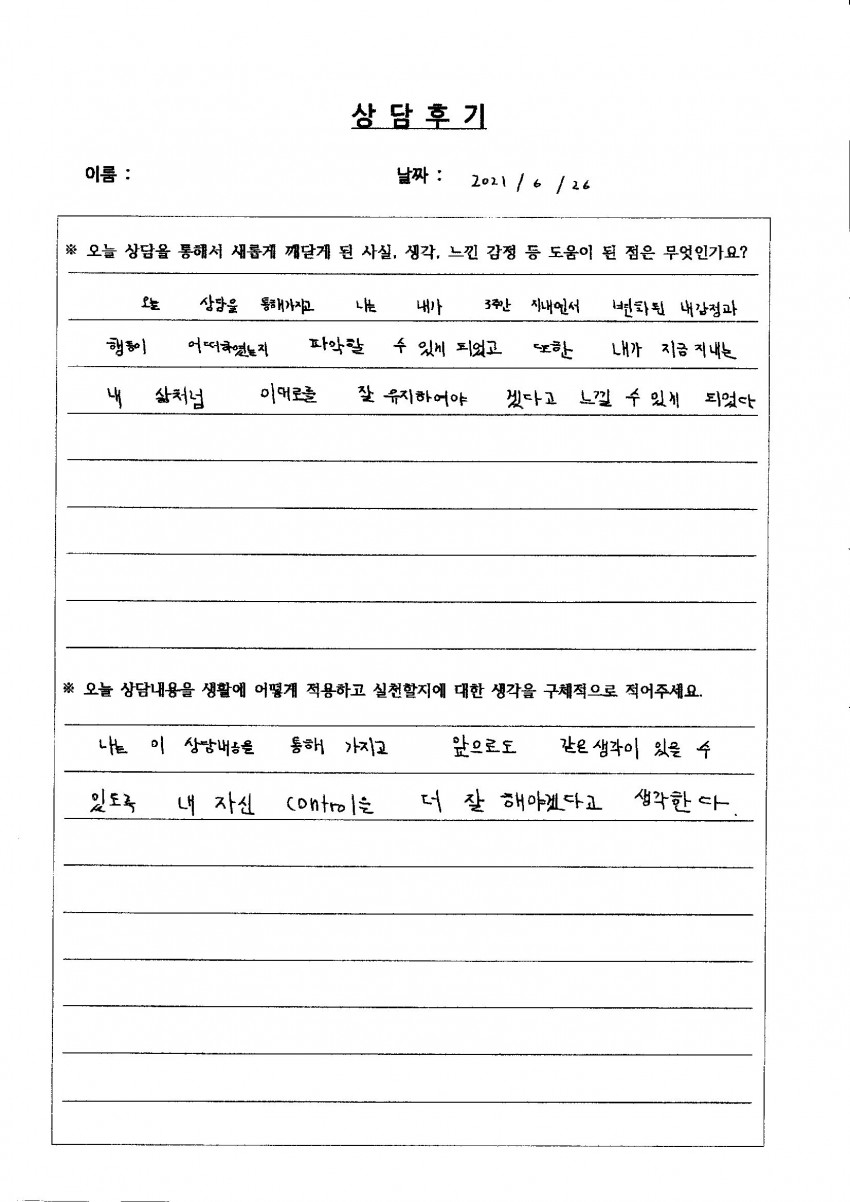 상 담 후 기
이름 :
날짜 : 2021 / 6 / 26
※ 오늘 상담을 통해서 새롭게 깨닫게 된 사실, 생각, 느낀 감정 등 도움이 된 점은 무엇인가요?
오늘 상담을 통해가지고 나는 내가 3주간 지내면서 변화된 내감정과
행동이 어떠하였는지 파악할 수 있게 되었고 또한 내가 지금 지내는
내 삶처럼 이대로를 잘 유지하여야 겠다고 느낄 수 있게 되었다
※ 오늘 상담내용을 생활에 어떻게 적용하고 실천할지에 대한 생각을 구체적으로 적어주세요.
나는 이 상담내용을 통해 가지고 앞으로도 같은생각이 있을 수
있도록 내 자신 control은 더 잘 해야겠다고 생각한다.